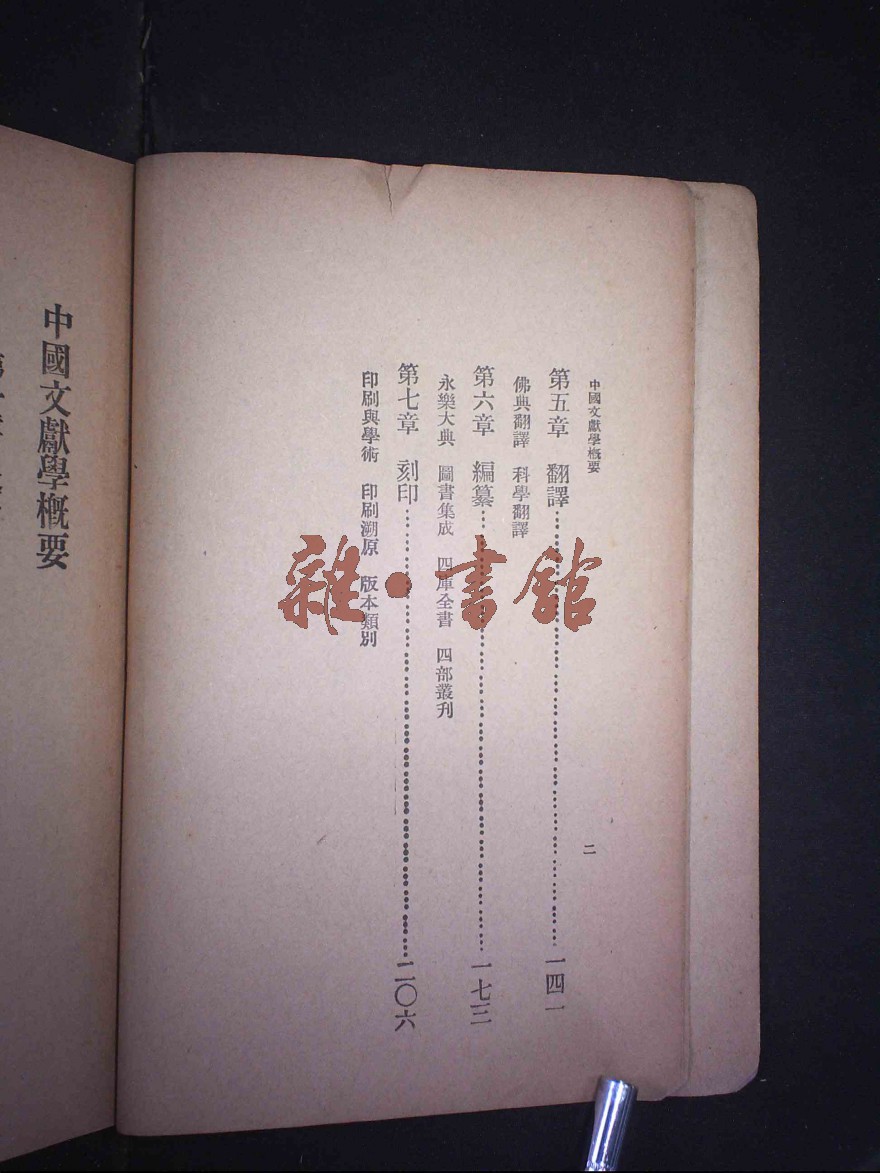 中國文獻學槪要
二
第五章 翻譯……一四一
佛典翻譯 科學翻譯
第六章 編纂……一七三
永樂大典 圖書集成 四庫全書 四部叢刊
第七章 刻印……二〇六
印刷與學術 印刷溯原 版本類別
中國文獻學槪要
雜·書館